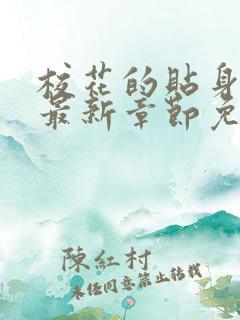 校花的貼身
最新章節免
陳紅村
未经同意禁止转载